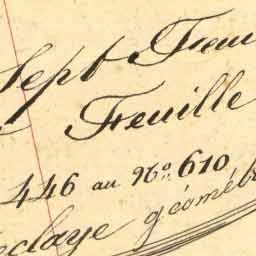 Sept
Feuille
446 au No. 610
géomét